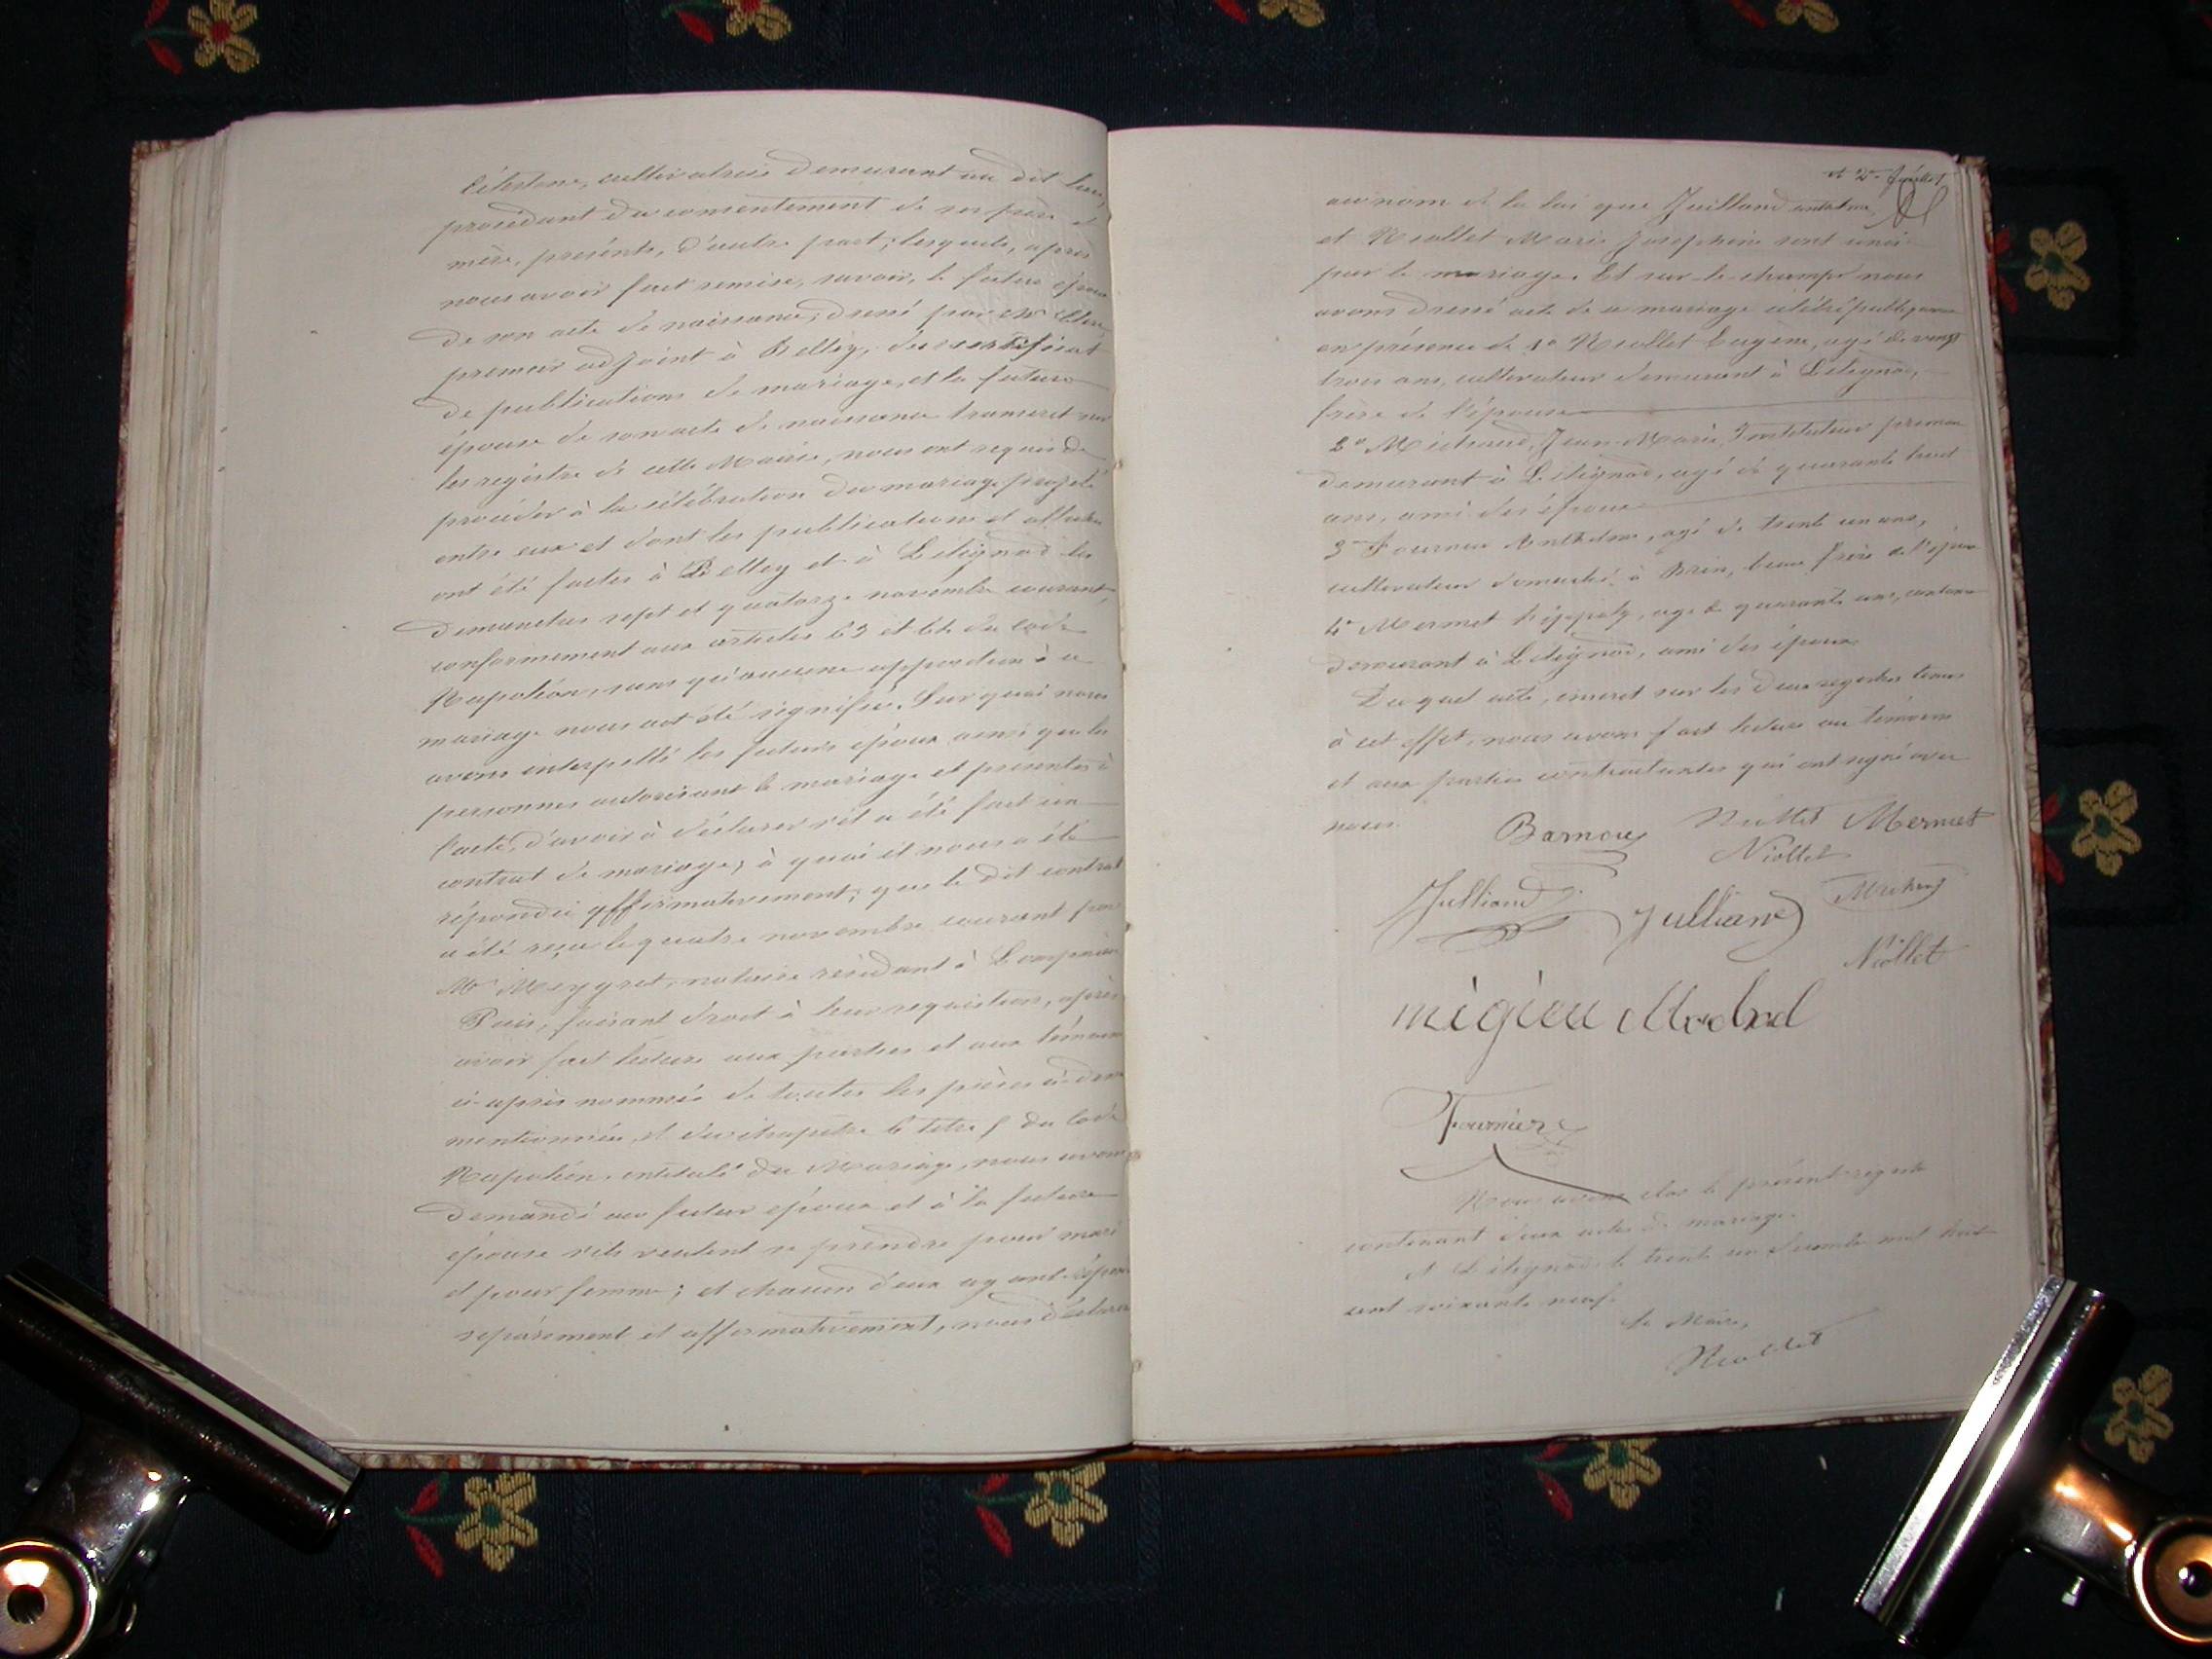 Célestine, cultivatrice demeurant au dit lieu,
procédant du consentement de ses père et
mère, présents, d'autre part; lesquels, après
nous avoir fait remise, savoir, le futur époux
de son acte de naissance, dressé par Mr
premier adjoint à Belley, du certificat
de publications de mariage, et la future
épouse de son acte de naissance transcrit sur
les registre de cette Mairie, nous ont requis de
procéder à la célébration du mariage projeté
entre eux et dont les publications et affiches
ont été faites à Belley et à Lilignod les
dimanches sept et quatorze novembre courant,
conformement aux articles 63 et 64 du Code
Napoléon, sans qu'aucune opposition à ce
mariage nous ait été signifiée. Sur quoi nous
avons interpellé les futurs époux ainsi que les
personnes autorisant le mariage et présentes à
l'acte, d'avoir à déclarer s'il a été fait un
contrat de mariage, à quoi il nous a été
répondu affirmativement; que le dit contrat
a été reçu le quatre novembre courant par
Me Meygret, notaire résidant à
Puis, faisant droit à leur requisition, après
avoir fait lecture aux parties et aux témoins
ci-après nommés de toutes les pièces ci-dessus
mentionnées, et du chapitre 6 titre 5 du Code
Napoléon, intitulé du Mariage, nous avons
demandé au futur époux et à la future
épouse s'ils veulent se prendre pour mari
et pour femme; et chacun d'eux ayant répondu
séparement et affirmativement, nous déclarons
et 2e feuillet
au nom de la loi que Juilland
et Niollet Marie Josephine sont unis
par le mariage. Et sur-le-champ nous
avons dressé acte de ce mariage célébré publiquement
en présence de 1o Niollet Eugène, agé de vingt
trois ans, cultivateur demeurant à Lilignod,
frère de l'épouse
2o Michaud, Jean-Marie, Instituteur
demeurant à Lilignod, agé de quarante huit
ans, ami des époux
3o Fournier Anthelme, agé de trente un ans,
cultivateur domicilié à Brin, beau frère de l'époux
4o Mermet hyppoly, agé de quarante ans,
demeurant à Lilignod, ami des époux
Du quel acte, inscrit sur les deux registres tenus
à cet effet, nous avons fait lecture au témoins
et aux parties contractantes qui ont signé avec
nous. Barnoux Niollet Mermet
Niollet
Julliand Julliand Michaud
Niollet
migieu
Fournier
Nous avons clos le présent registre
contenant deux actes de mariage.
A Lilignod le trente un décembre mil huit
cent soixante neuf.
Le Maire,
Niollet